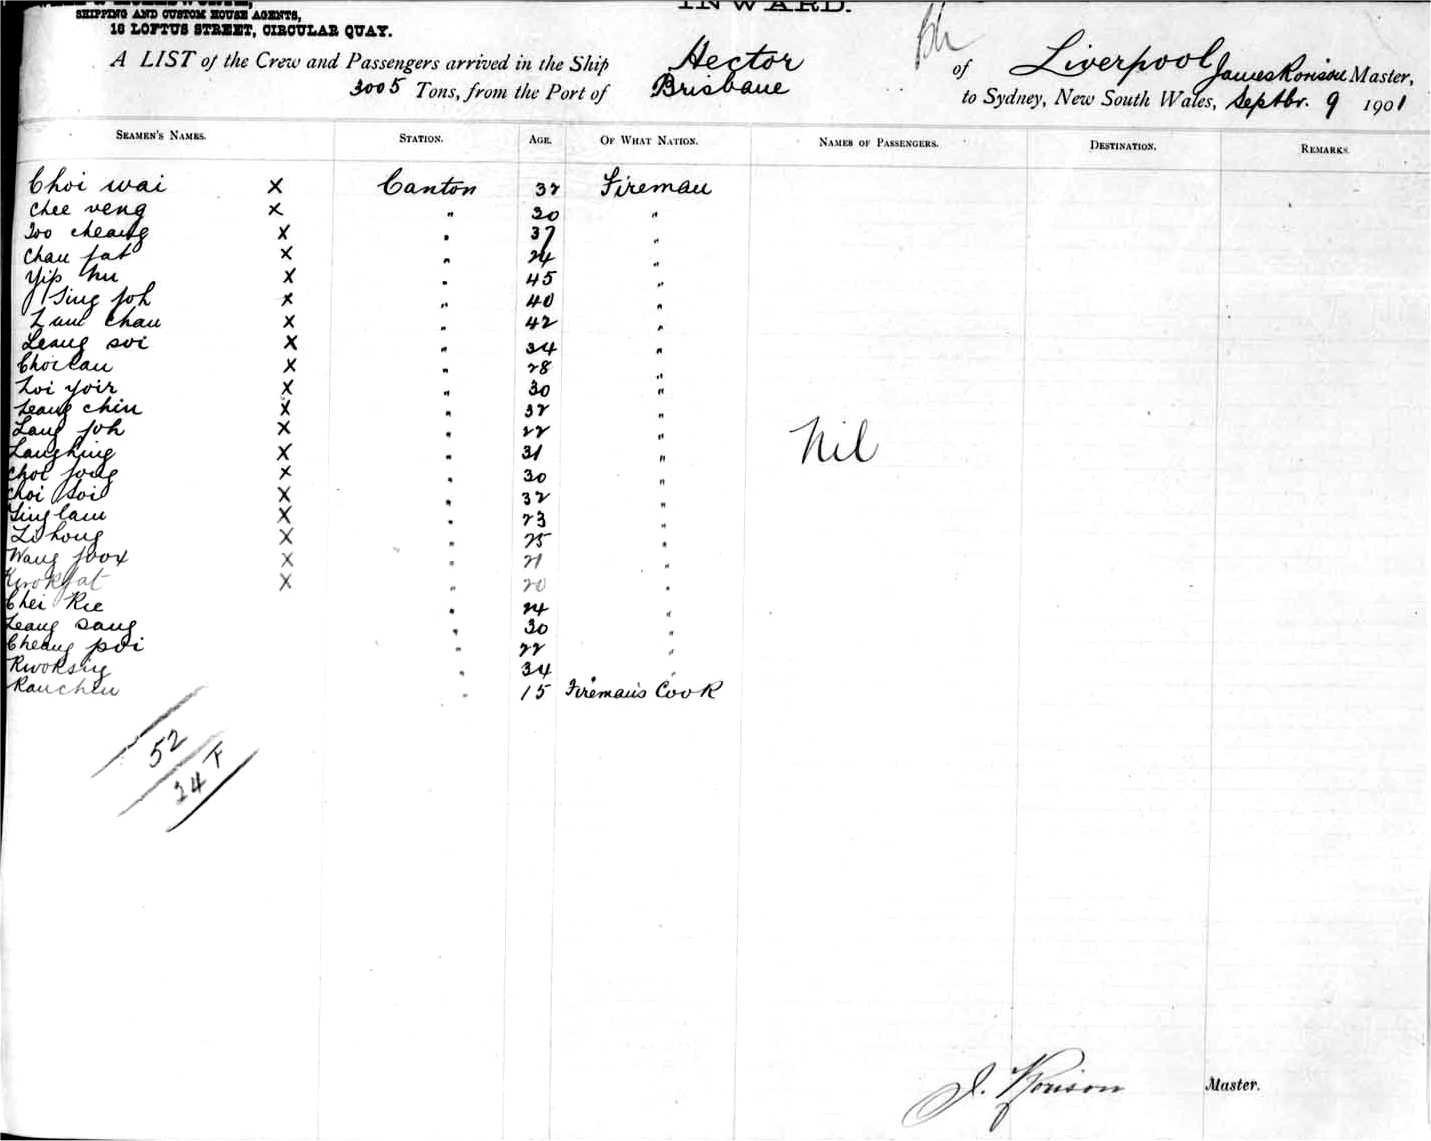 INWARD.
SHIPPING AND CUSTOM HOUSE AGENTS,
16 LOFTUS STREET, CIRCULAR QUAY.
A LIST of the Crew and Passengers arrived in the Ship Hector of Liverpool James Master,
3005 Tons, from the Port of Brisbane to Sydney, New South Wales, Septbr. 9 1901
SEAMEN'S NAMES. STATION. AGE. OF WHAT NATION. NAMES OF PASSENGERS. DESTINATION. REMARKS.
Choi wai X Canton 32 Fireman
Chee veng X " 30 "
Too cheang X " 37 "
Chau fat X " 24 "
Yip hu X " 45 "
Sing foh X " 40 "
Lum chau X " 42 "
Leang soi X " 34 "
Choi cau X " 28 "
Loi yoir X " 30 "
Leang chin X " 32 "
Lang foh X " 22 "
Laughing X " 31 "
Nil
Choi fong X " 30 "
Choi Soi X " 32 "
Sing lam X " 23 "
Li hong X " 25 "
Wang foox X " 21 "
Kwok fat X " 20 "
Chei Kee " 24 "
Leang sang " 30 "
Cheang poi " 22 "
Kwok sing " 34 "
Kau chiu " 15 Fireman's Cook
52
24 F
Master.